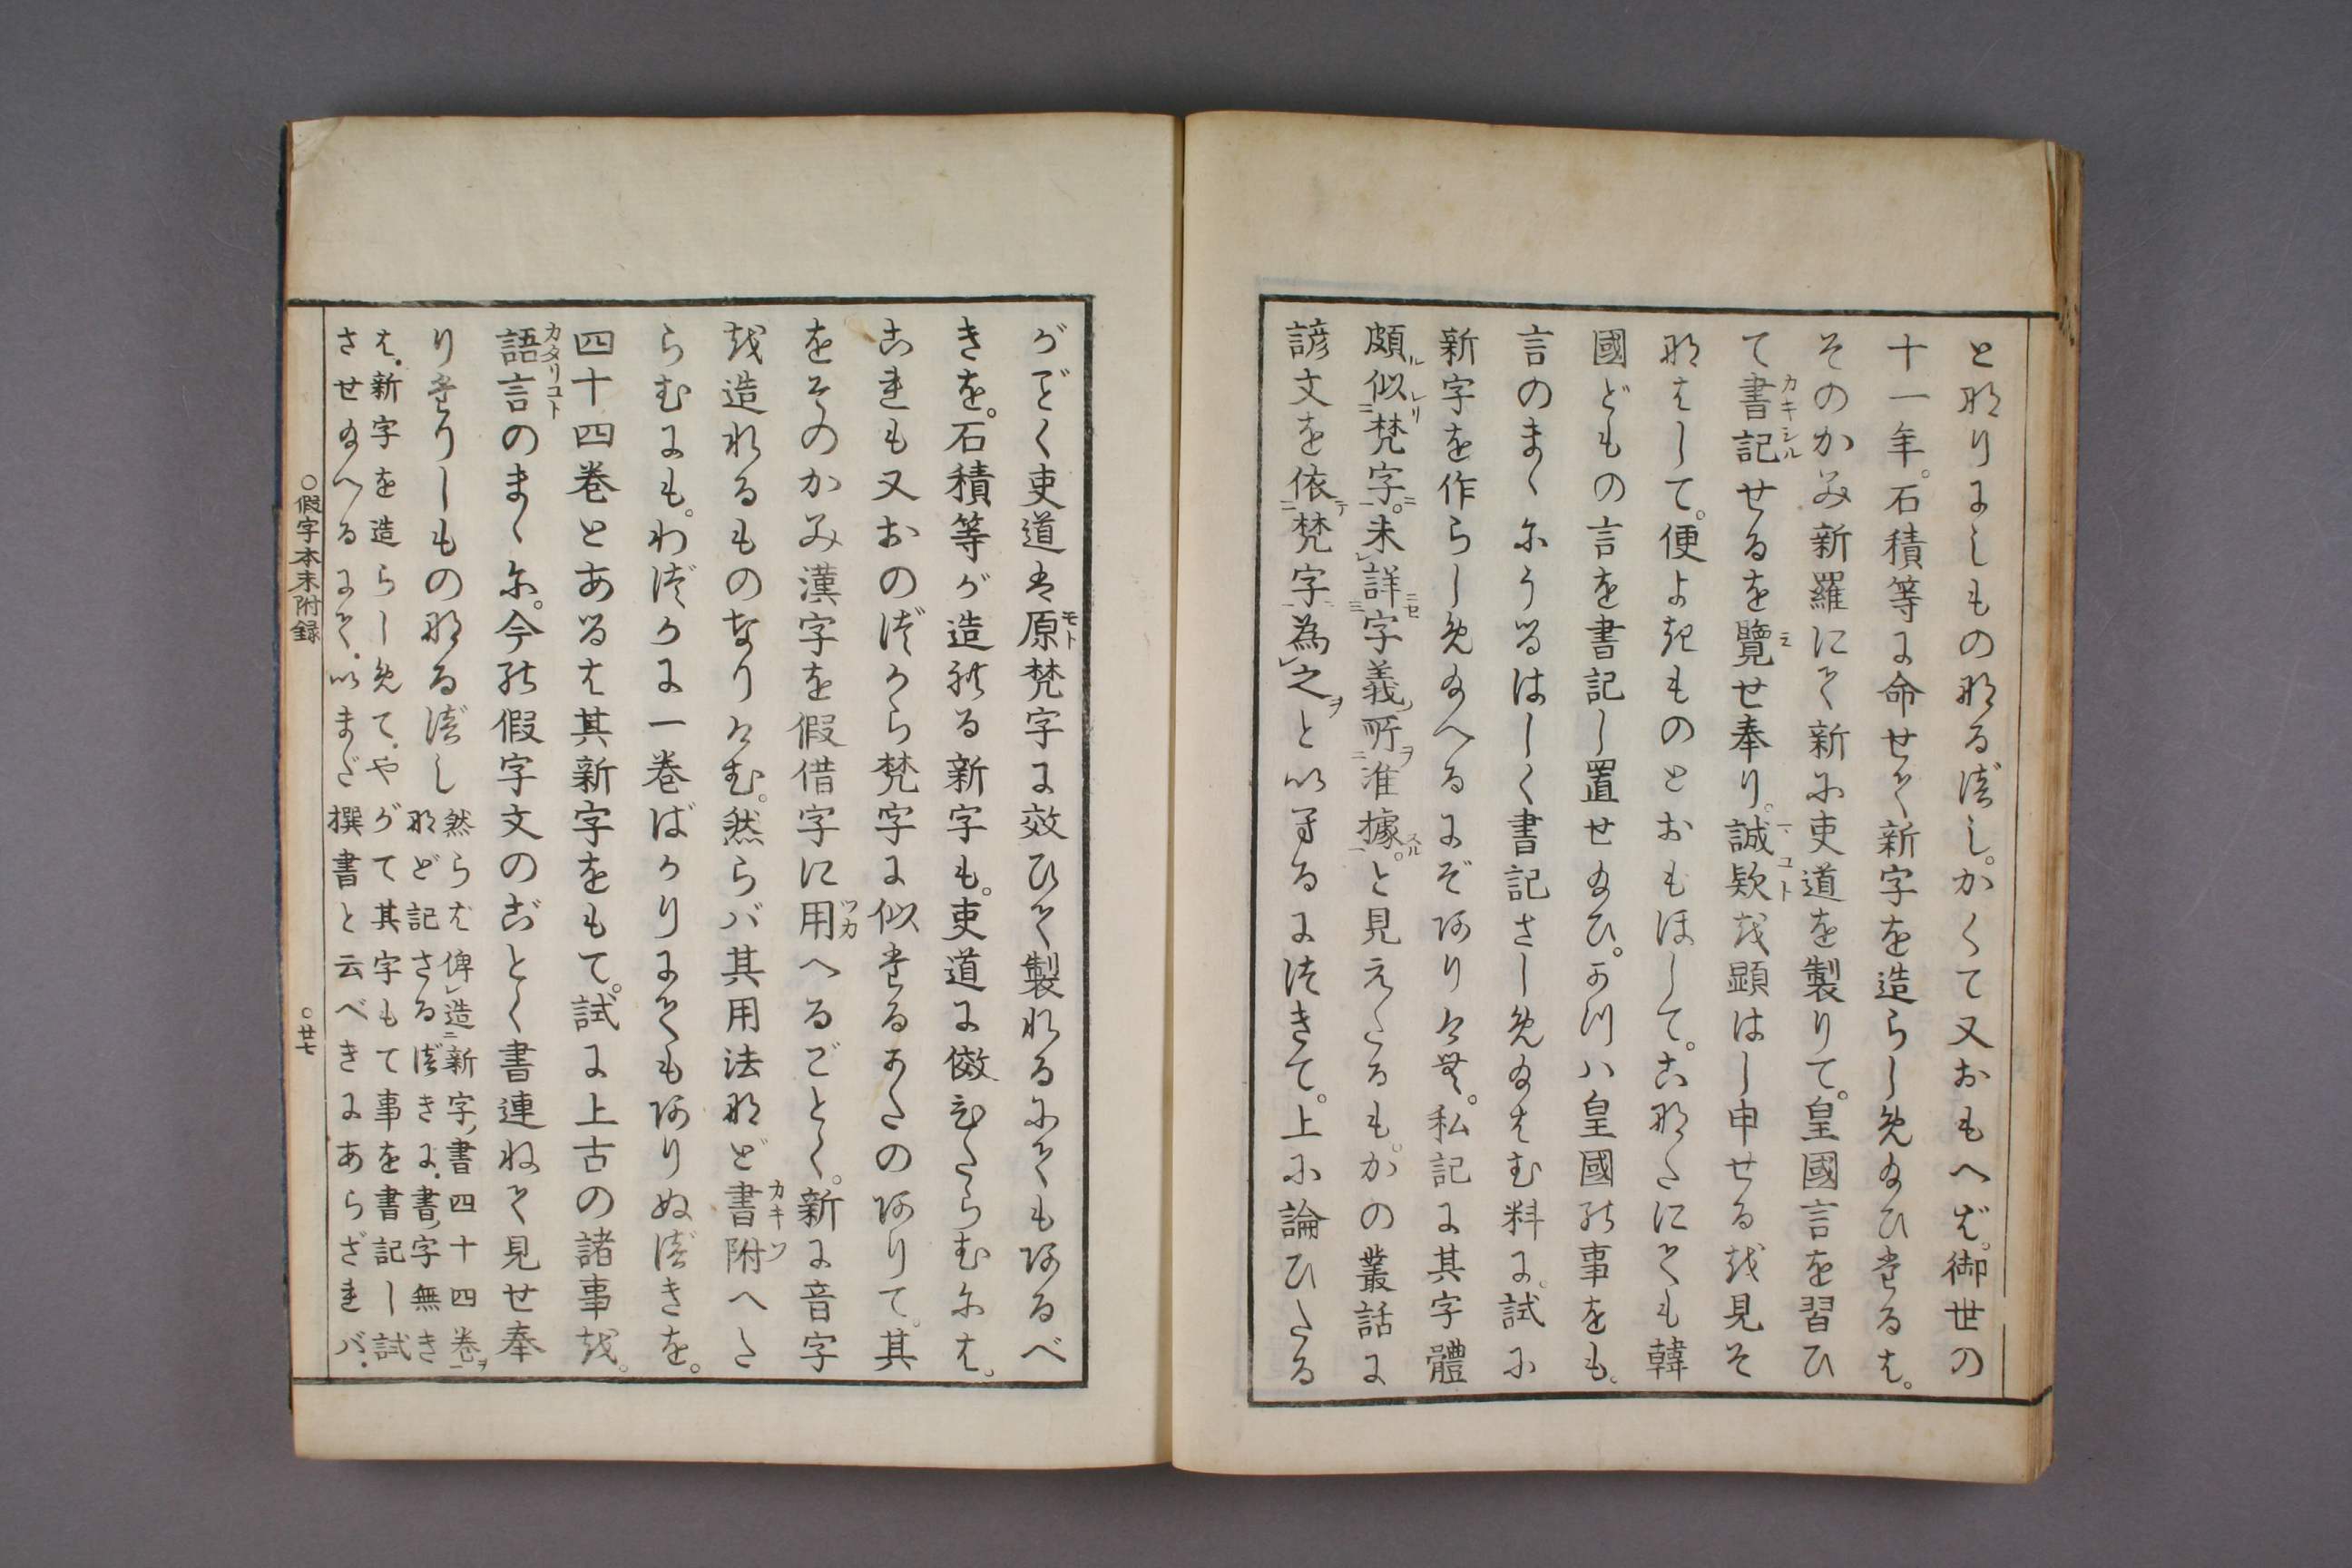 と那りにしもの那るべし。かくて又おもへば。御世の
十一年。石積等に命せて新字を造らしめ給ひたるは。
そのかみ新羅にて新に吏道を製りて。皇國言を習ひ
て書記せるを覽せ奉り。誠欵を顕はし申せるを見そ
那はして。便よきものとおもほして。こ那たにても韓
國どもの言を書記し置せ給ひ。かつハ皇國の事をも。
言のまゝにうるはしく書記さしめ給はむ料に。試に
新字を作らしめ給へるにぞありけむ。私記に其字體
頗似梵字。未詳字義所准據。と見えたるも。かの叢話に
諺文を依梵字為之と以へるに似きて。上に論ひたる
がごく吏道は原梵字に效ひて製れるにてもあるべ
きを。石積等が造れる新字も。吏道に傚ひたらむには。
これも又おのづから梵字に似たるかたのありて。其
をそのかみ漢字を假借字に用へるごとく。新に音字
を造れるものなりけむ。然らバ其用法那ど書附へた
らむにも。わづかに一巻ばかりにてもありぬべきを。
四十四巻とあるは其新字をもて。試に上古の諸事を。
語言のまゝに。今の假字文のごとく書連ねて見せ奉
りたりしもの那るべし
然らば俾造新字書四十四巻
那ど記さるべきに。書字無き
は。新字を造らしめて。やがて其字もて事を書記し試
させ給へるにて。いまだ撰書と云べきにあらざれバ.
○假字本末附録
○廿七